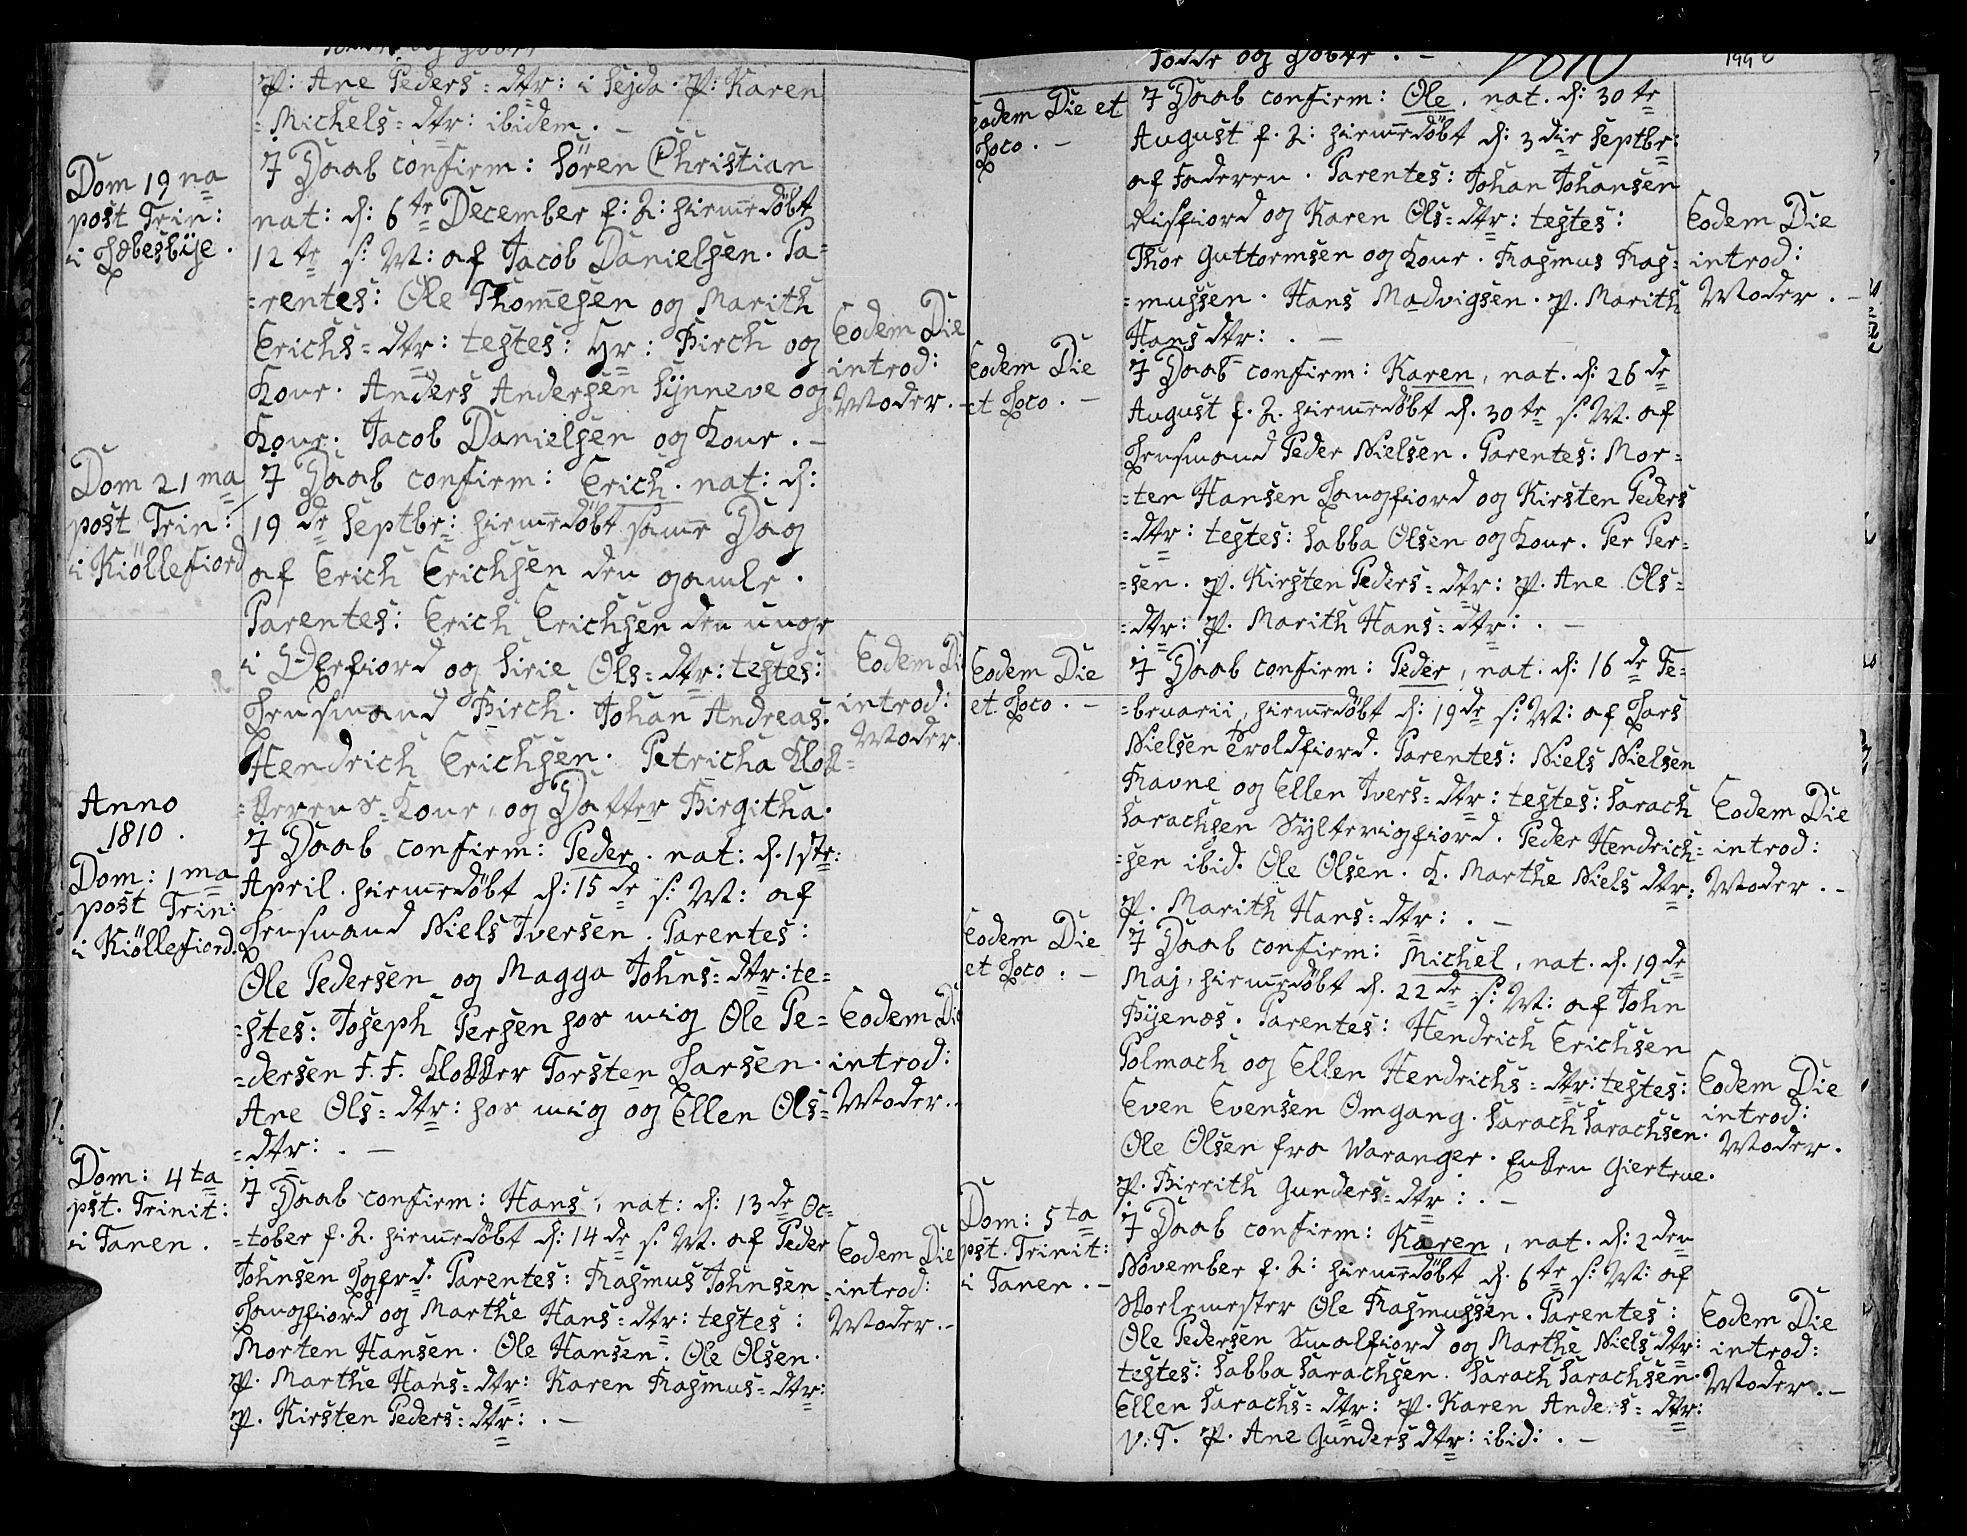 P: Ane Peders=dtr: i Sejda. P: Karen
=Michels=dtr: ibidem. -
Dom 19na
post Trin:
i Lebesbÿe.
I Daab confirm: Sören Christian
nat: d: 6te December f: A: hiemmedöbt
12te s: M: af Jacob Danielsen. Pa=
=rentes: Ole Thomesen og Marith
Erichs=dtr: testes: Hr: Birch og
Kone. Anders Andersen Synneve og
Kone. Jacob Danielsen og Kone. -
Eodem Die
introd:
Moder. -
Dom 21ma
post Trin:
i Kiöllefiord
I Daab confirm: Erich. nat: d:
19de Septbr: hiemmedöbt samme Dag
af Erich Erichsen den gamle.
Parentes: Erich Erichsen den unge
i fiord og Sirie Ols=dtr: testes:
Lensmand Birch. Johan Andreas.
Hendrich Erichsen. Petricha Klok=
=kerens Kone, og Datter Birgitha.
Eodem Die
introd:
Moder.
Anno
1810.
Dom: 1ma
post Trin:
i Kiöllefiord.
I Daab confirm: Peder. nat: d. 1ste:
April. hiemmedöbt d: 15de s: M: af
Lensmand Niels Iversen. Parentes:
Ole Pedersen og Magga Johns=dtr: te=
=stes: Joseph Persen hos mig Ole Pe=
=dersen F. F. Klokker Torsten Larsen.
Ane Ols=dtr: hos mig og Ellen Ols=
=dtr: . -
Eodem Die
introd:
Moder. -
Dom: 4ta
pst. Trinit:
i Tanen.
I Daab confirm: Hans, nat: d: 13de Oc=
=tober f. A. hiemmedöbt d: 14de s. M. af Peder
Johnsen Lgfrd. Parentes: Rasmus Johnsen
Langfiord og Marthe Hans=dtr: testes:
Morten Hansen. Ole Hansen. Ole Olsen.
P. Marthe Hans=dtr: Karen Rasmus=dtr:
P. Kirsten Peders=dtr: . -
Eodem Die
introd:
Moder. -
Födde og Döbte. - 1810
Eodem Die et
Loco. -
I Daab confirm: Ole, nat. d: 30te
August f. A: hiemmedöbt d: 3die Septbr:
af Faderen. Parentes: Johan Johansen
Risfiord og Karen Ols=dtr: testes:
Thor Guttormsen og Kone. Rasmus Ras=
=mussen. Hans Madvigsen. P. Marith
Hans dtr: . -
Eodem Die
introd:
Moder. -
Eodem Die
et Loco. -
I Daab confirm: Karen, nat. d: 26de
August f. A. hiemmedöbt d. 30te s. M. af
Lensmand Peder Nielsen. Parentes: Mor=
=ten Hansen Langfiord og Kirsten Peders
=dtr: testes: Sabba Olsen og Kone. Per Per=
=sen. P. Kirsten Peders=dtr: P. Ane Ols=
=dtr: P. Marith Hans=dtr: . -
Eodem Die
et Loco. -
I Daab confirm: Peder, nat. d: 16de Fe=
=bruarii, hiemmedöbt d: 19de s: M: af Lars
Nielsen Troldfiord. Parentes: Niels Nielsen
Ravne og Ellen Ivers=dtr: testes: Sarach
Sarachsen Sylterigfiord. Peder Hendrich=
=sen ibid. Ole Olsen. K. Marthe Niels dtr:
P. Marith Hans=dtr: . -
Eodem Die
introd:
Moder. -
Eodem Die
et Loco. -
I Daab confirm: Michel, nat. d. 19de
Maj, hiemmedöbt d. 22de s: M: af John
Byenæs. Parentes: Hendrich Erichsen
Polmach og Ellen Hendrichs=dtr: testes:
Even Evensen Omgang. Sarach Sarachsen.
Ole Olsen fra Waranger. Enken Giertrue.
P. Birrith Gunders=dtr: . -
Eodem Die
introd:
Moder.
Dom: 5ta
pst. Trinit:
i Tanen. -
I Daab confirm: Karen, nat. d: 2den
November f. A: hiemmedöbt d. 6te s: M: af
Skolemester Ole Rasmussen. Parentes:
Ole Pedersen Smalfiord og Marthe Niels dtr:
testes: Sabba Sarachsen. Sarach Sarachsen.
Ellen Sarachs=dtr: P. Karen Anders=dtr:
V: T. P. Ane Gunders dtr: ibid: . -
Eodem Die
introd:
Moder. -